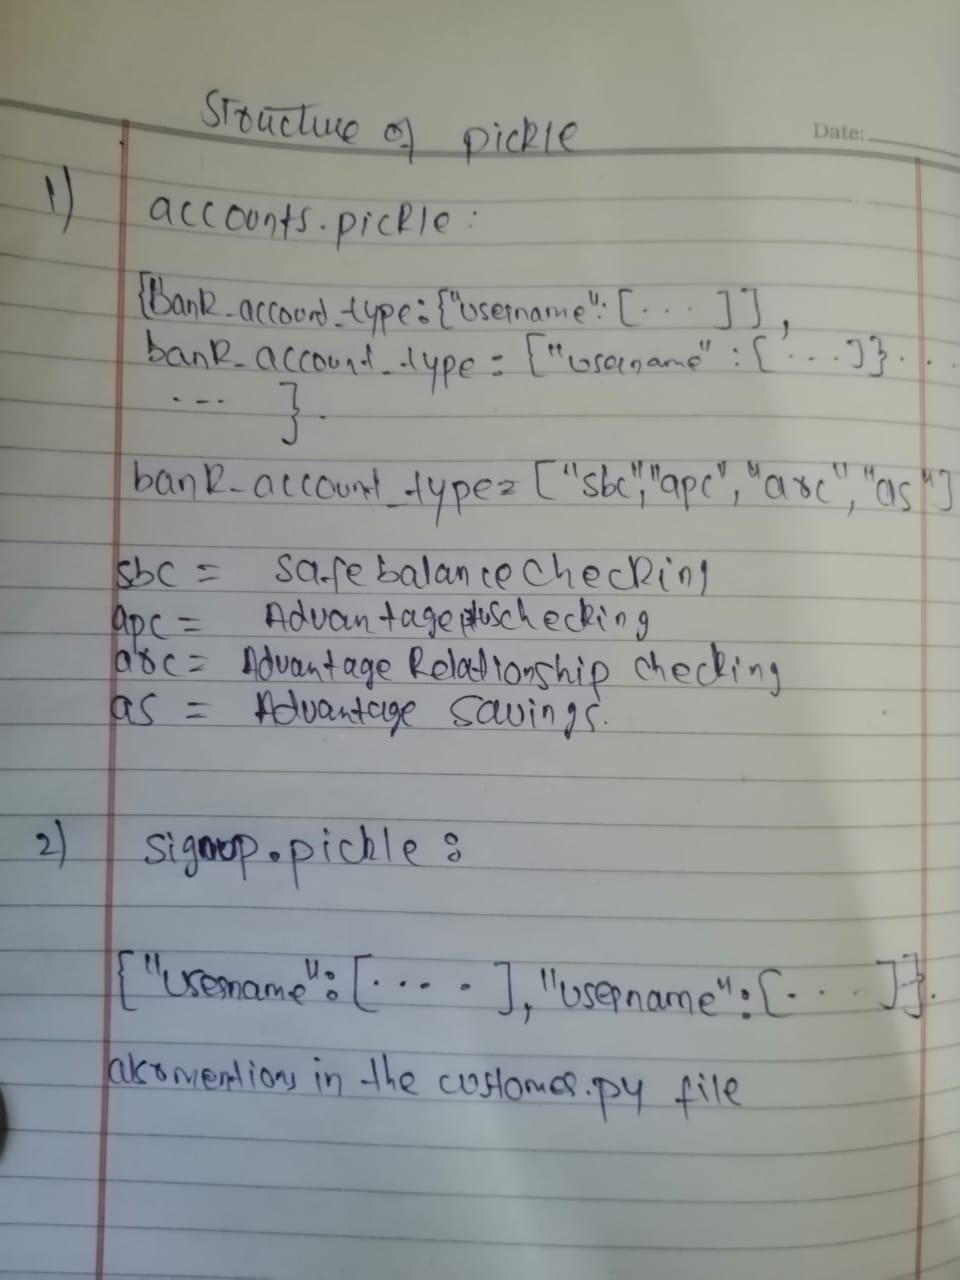 Structure of pickle
Date:
1) accounts.pickle:
{Bank_account_type:{"username":[... ]],
bank_account_type = ["username":['...]}...
... }.
bank_account_type= ["sbc","apc","arc","as"]
sbc = Safe balance Checking
apc = Advantage plus checking
arc = Advantage Relationship checking
as = Advantage Savings.
2) signup.pickle:
{"username":[....],"username":[... ]}.
mention in the customer.py file